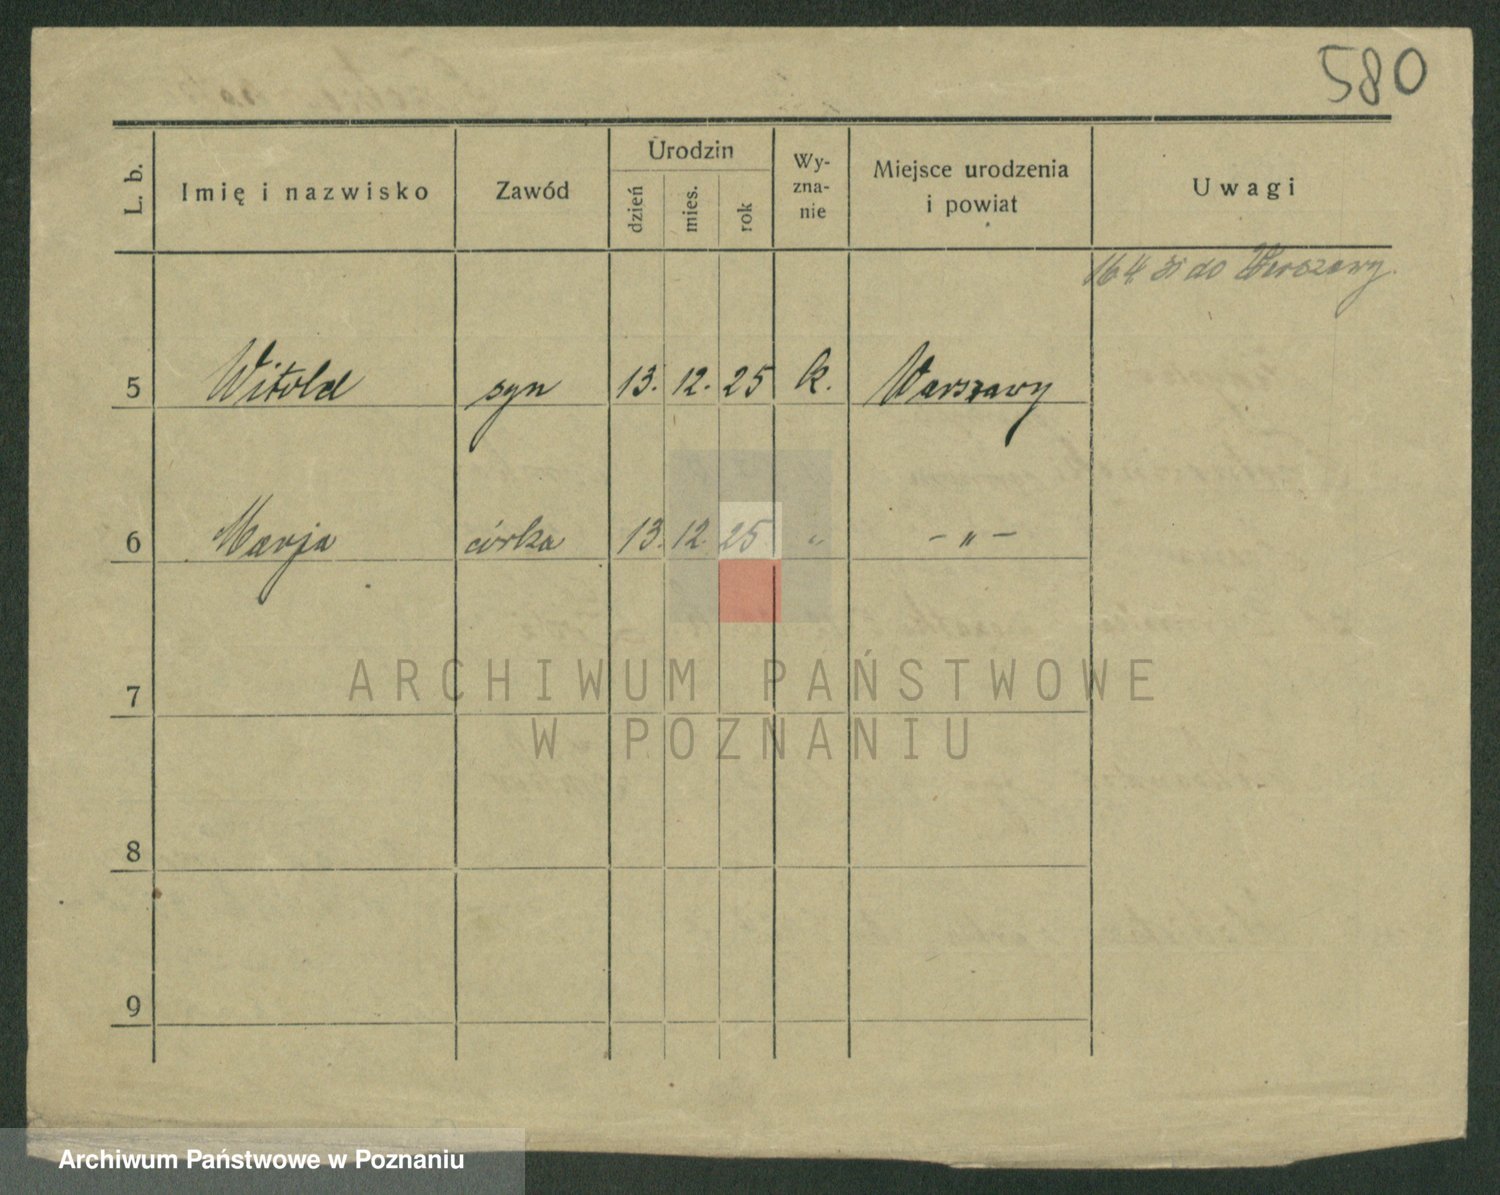 580
L. b.
Imię i nazwisko
Zawód
Urodzin
dzień
mies.
rok
Wy-
zna-
nie
Miejsce urodzenia
i powiat
Uwagi
16 4 31 do Warszawy.
5 Witold syn 13. 12. 25 k. Warszawy
6 Marja córka 13. 12. 25 " - " -
7
8
9
ARCHIWUM PAŃSTWOWE
W POZNANIU
Archiwum Państwowe w Poznaniu